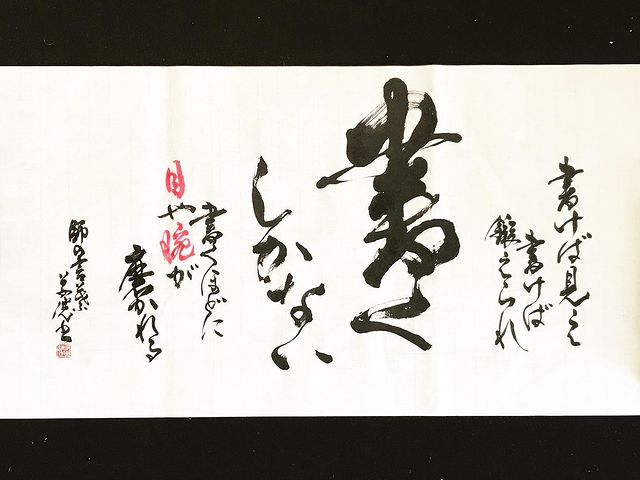 書けば見え
書けば
鍛えられ
書く
しかない
書くほどに
目や腕が
磨かれる
師の言葉